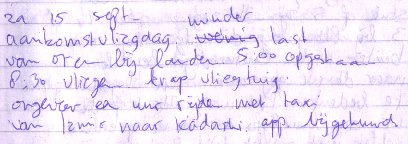 za 15 sept. minder
aankomst vliegdag weinig last
van oren bij landen 5:00 opgestaan
8,30 vliegen krap vliegtuig.
ongeveer een uur rijden met taxi
van Izmir naar Kadashi. app bijgehuurd